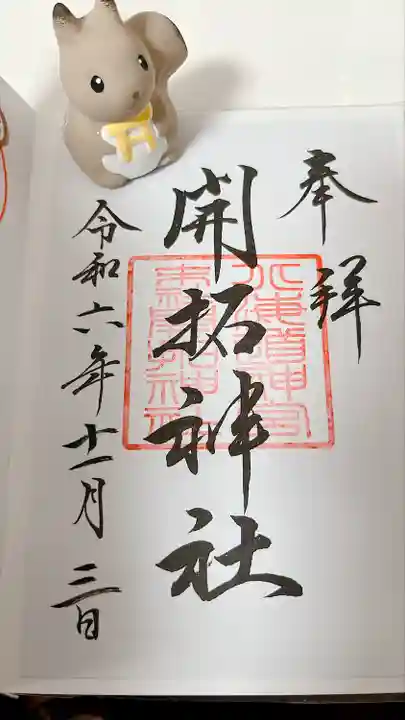 奉拝
開拓神社
令和六年十一月三日
北海道神宮
末社開拓神社